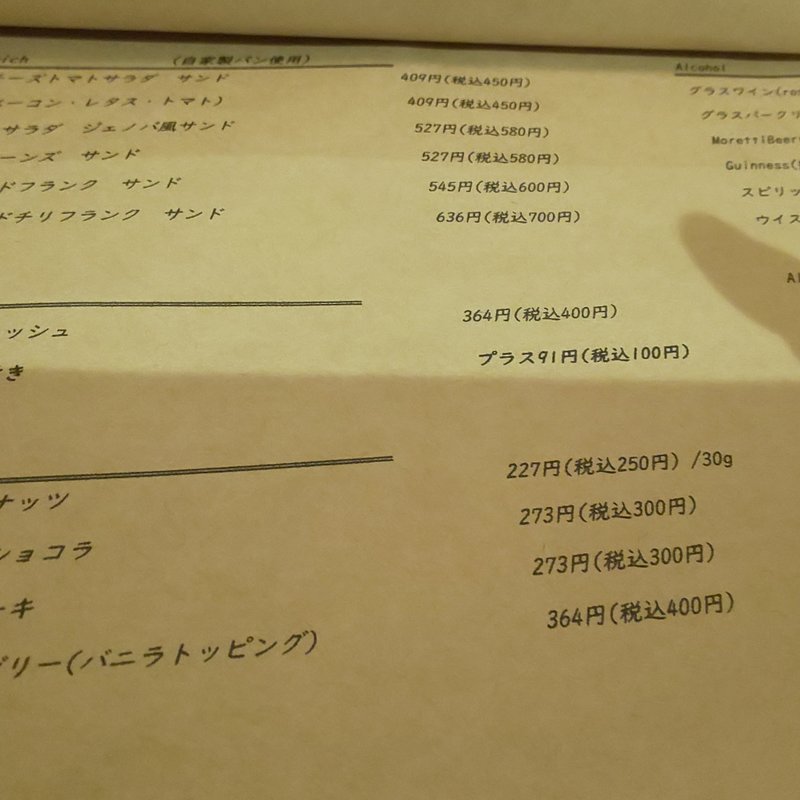 ich (自家製パン使用)
ーズトマトサラダ サンド 409円(税込450円)
ーコン・レタス・トマト) 409円(税込450円)
サラダ ジェノバ風サンド 527円(税込580円)
ーンズ サンド 527円(税込580円)
ドフランク サンド 545円(税込600円)
ドチリフランク サンド 636円(税込700円)
ッシュ 364円(税込400円)
き プラス91円(税込100円)
ナッツ 227円(税込250円) /30g
ショコラ 273円(税込300円)
ーキ 273円(税込300円)
リー(バニラトッピング) 364円(税込400円)
Alcohol
グラスワイン(
グラススパークリ
MorettiBeer
Guinness(
スピリッ
ウイス
Al